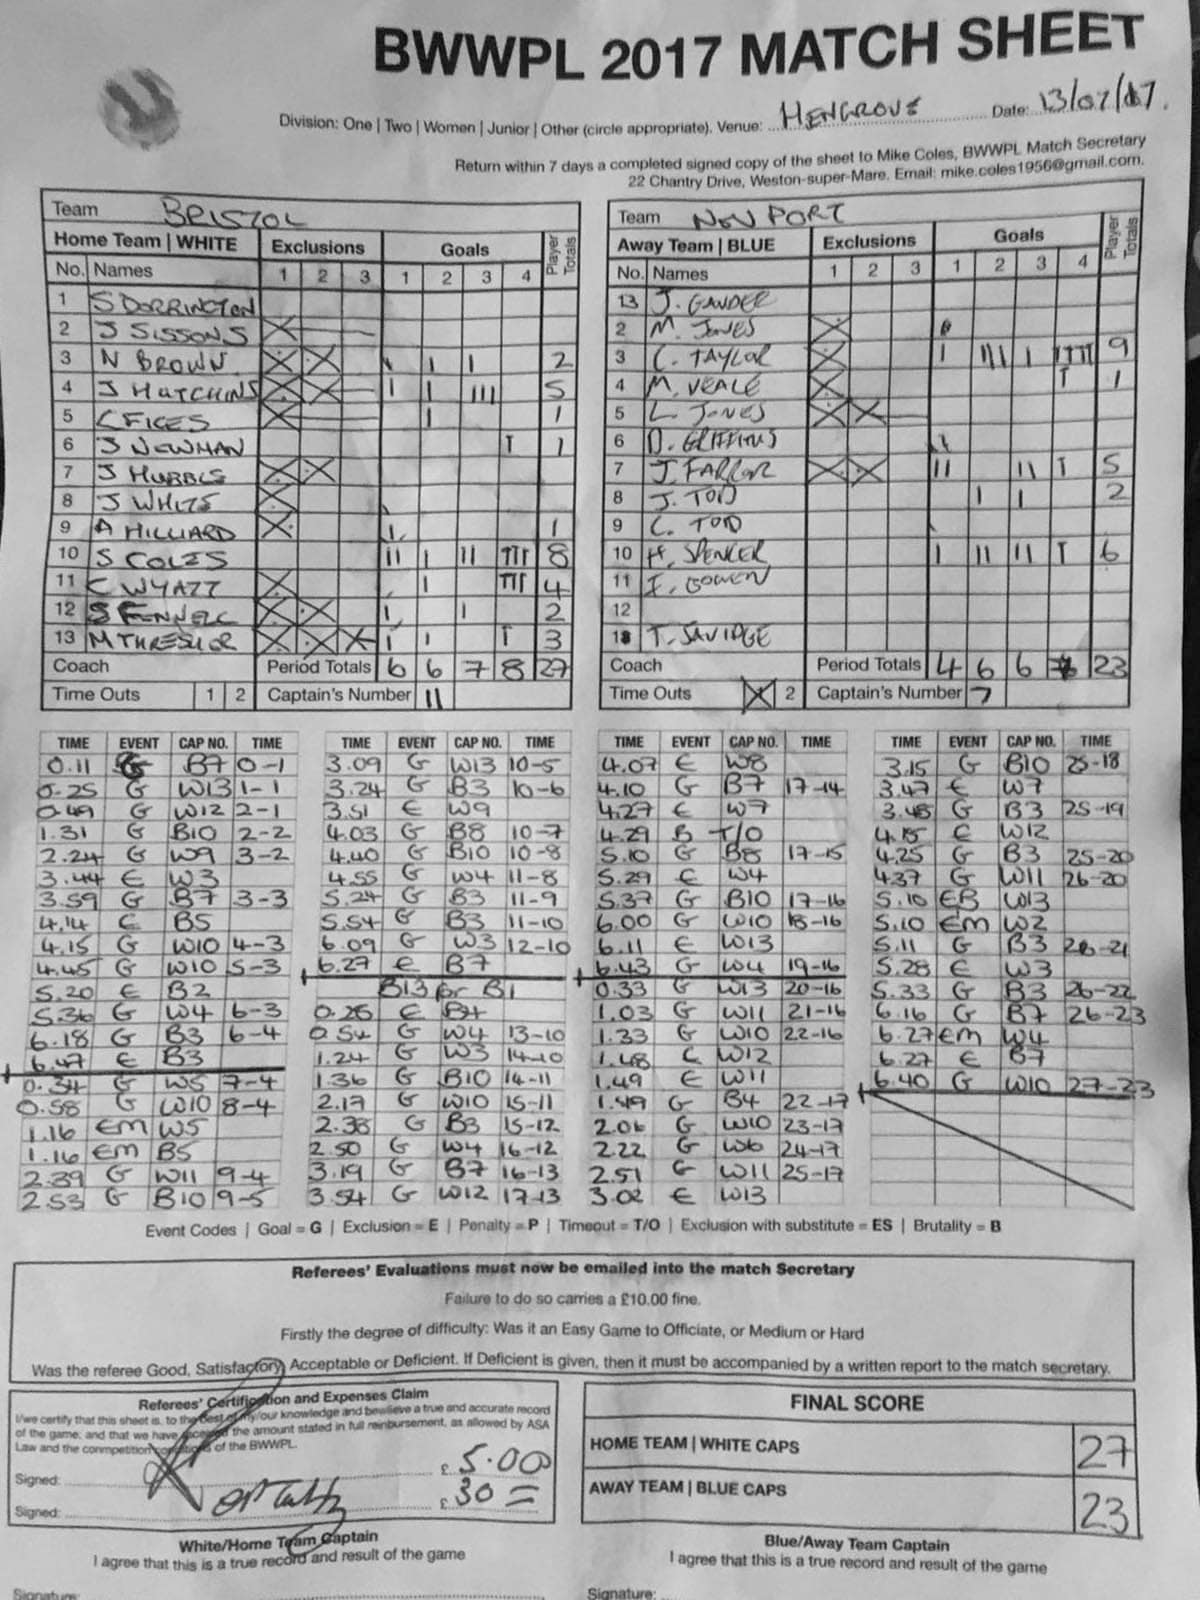 BWWPL 2017 MATCH SHEET
Division: One | Two | Women | Junior | Other (circle appropriate). Venue: HENGROVE Date: 13/07/17.
Return within 7 days a completed signed copy of the sheet to Mike Coles, BWWPL Match Secretary
22 Chantry Drive, Weston-super-Mare. Email: mike.coles1956@gmail.com.
Team BRISTOL
Home Team | WHITE Exclusions Goals Player Totals
No. Names 1 2 3 1 2 3 4
1 S DORRINGTON
2 J SISSONS X
3 N BROWN X X I I 2
4 J HUTCHINS X X I I III 5
5 C FICES X I 1
6 J NEWMAN I 1
7 J HUBBLS X X
8 J WHITE X
9 A HILLIARD X I 1
10 S COLES II I II III 8
11 C WYATT X I III 4
12 S FENNELL X X I I 2
13 M THRESHER X X X I I I 3
Coach Period Totals 6 6 7 8 27
Time Outs 1 2 Captain's Number 11
Team NEWPORT
Away Team | BLUE Exclusions Goals Player Totals
No. Names 1 2 3 1 2 3 4
13 J. GANDER
2 M. JONES X
3 C. TAYLOR X I III I IIII 9
4 M. VEALE X I 1
5 L. JONES X X
6 D. GRIFFITHS
7 J. FARROR X X II II I 5
8 J. TOD I I 2
9 C. TOD
10 H. SPENCER I II II I 6
11 I. BOWEN
12
13 T. SAVIDGE
Coach Period Totals 4 6 6 7 23
Time Outs X 2 Captain's Number 7
TIME EVENT CAP NO. TIME
0.11 G B7 0-1
0.25 G W13 1-1
0.49 G W12 2-1
1.31 G B10 2-2
2.24 G W9 3-2
3.44 E W3
3.59 G B7 3-3
4.14 E B5
4.15 G W10 4-3
4.45 G W10 5-3
5.20 E B2
5.36 G W4 6-3
6.18 G B3 6-4
6.47 E B3
0.34 G W5 7-4
0.58 G W10 8-4
1.16 EM W5
1.16 EM B5
2.39 G W11 9-4
2.53 G B10 9-5
TIME EVENT CAP NO. TIME
3.09 G W13 10-5
3.24 G B3 10-6
3.51 E W9
4.03 G B8 10-7
4.40 G B10 10-8
4.55 G W4 11-8
5.24 G B3 11-9
5.54 G B3 11-10
6.09 G W3 12-10
6.27 E B7
B13 for B1
0.28 E B4
0.54 G W4 13-10
1.24 G W3 14-10
1.36 G B10 14-11
2.17 G W10 15-11
2.38 G B3 15-12
2.50 G W4 16-12
3.19 G B7 16-13
3.54 G W12 17-13
TIME EVENT CAP NO. TIME
4.07 E W8
4.10 G B7 17-14
4.27 E W7
4.29 B T/O
5.10 G B8 17-15
5.29 E W4
5.37 G B10 17-16
6.00 G W10 18-16
6.11 E W13
6.43 G W4 19-16
0.33 G W13 20-16
1.03 G W11 21-16
1.33 G W10 22-16
1.48 E W12
1.49 E W11
1.49 G B4 22-17
2.06 G W10 23-17
2.22 G W6 24-17
2.51 G W11 25-17
3.02 E W13
TIME EVENT CAP NO. TIME
3.15 G B10 25-18
3.47 E W7
3.48 G B3 25-19
4.15 E W12
4.25 G B3 25-20
4.37 G W11 26-20
5.10 EB W13
5.10 EM W2
5.11 G B3 26-21
5.28 E W3
5.33 G B3 26-22
6.16 G B7 26-23
6.27 EM W4
6.27 E B7
6.40 G W10 27-23
Event Codes | Goal = G | Exclusion = E | Penalty = P | Timeout = T/O | Exclusion with substitute = ES | Brutality = B
Referees' Evaluations must now be emailed into the match Secretary
Failure to do so carries a £10.00 fine.
Firstly the degree of difficulty: Was it an Easy Game to Officiate, or Medium or Hard
Was the referee Good, Satisfactory, Acceptable or Deficient. If Deficient is given, then it must be accompanied by a written report to the match secretary.
Referees' Certification and Expenses Claim
I/we certify that this sheet is, to the best of my/our knowledge and bewlieve a true and accurate record
of the game; and that we have received the amount stated in full reinbursement, as allowed by ASA
Law and the conmpetition conditions of the BWWPL.
Signed: £ 5.00
Signed: £ 30 =
White/Home Team Captain
I agree that this is a true record and result of the game
Signature:
FINAL SCORE
HOME TEAM | WHITE CAPS 27
AWAY TEAM | BLUE CAPS 23
Blue/Away Team Captain
I agree that this is a true record and result of the game
Signature: